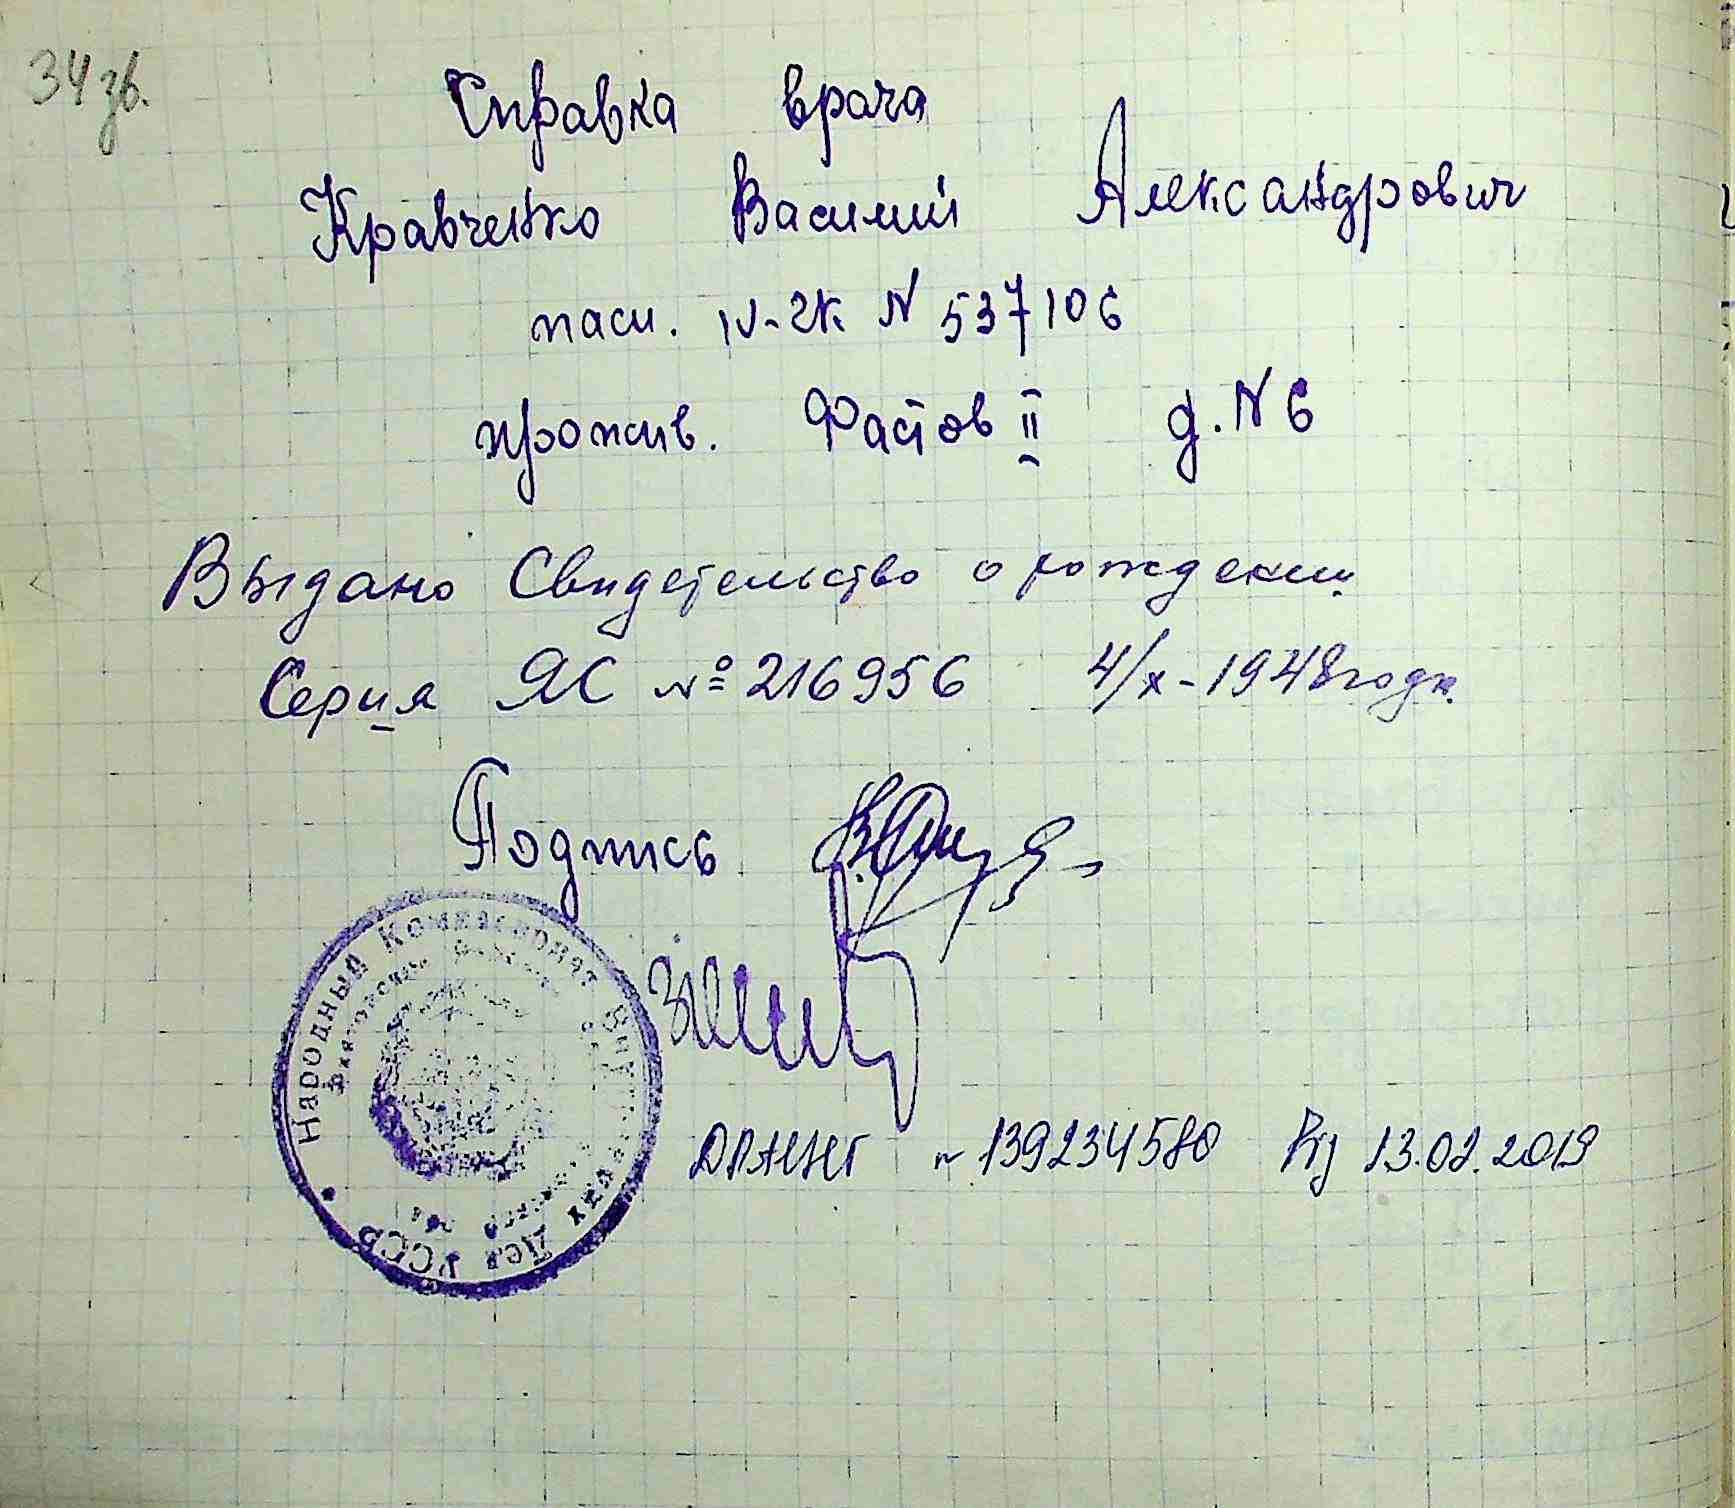 34 зв.
Справка врача
Кравченко Василий Александрович
пасп. IV-ЧК N 537106
прожив. Фастов II д. N 6
Выдано Свидетельство о рождении
Серия ЯС № 216956 4/X-1948 года.
Подпись
Народный Комиссариат Внутренних Дел УССР
N 139234580 13.02.2019